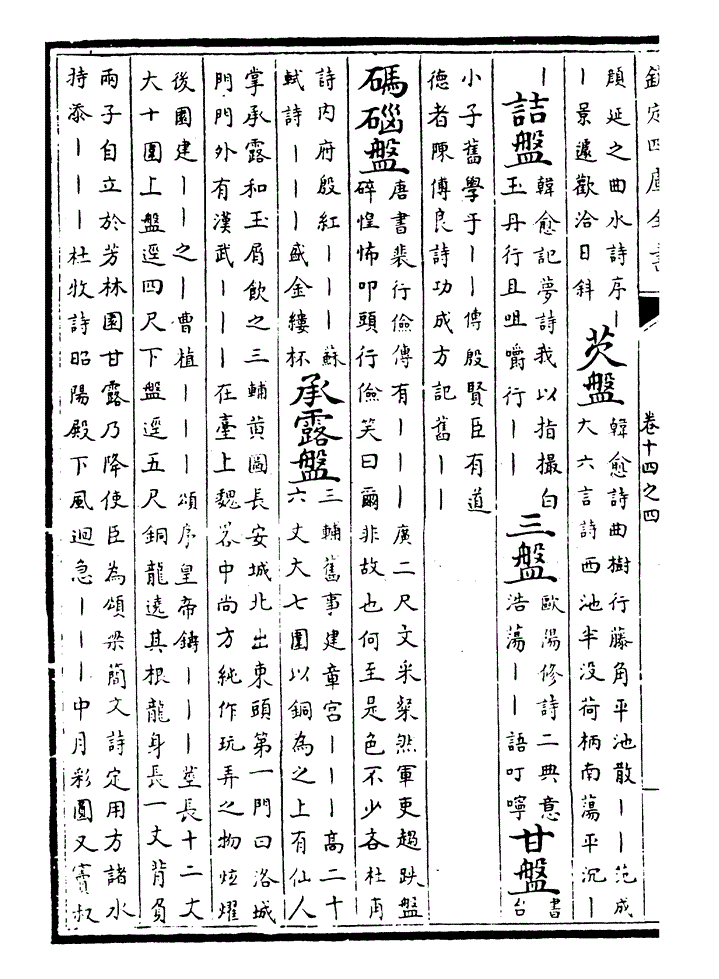 欽定四庫全書
卷十四之四
顔延之曲水詩序丨
丨景遽歡洽日斜
芡盤
韓愈詩曲樹行藤角平池散丨丨范成
大六言詩西池半没荷柄南蕩平沉丨
丨
詰盤
韓愈記夢詩我以指撮白
玉丹行且咀嚼行丨丨
三盤
歐陽修詩二典意
浩蕩丨丨語叮嚀
甘盤
書
台
小子舊學于丨丨傳殷賢臣有道
德者陳傅良詩功成方記舊丨丨
碼碯盤
唐書裴行儉傳有丨丨丨廣二尺文采粲然軍吏趨跌盤
碎惶怖叩頭行儉笑曰爾非故也何至是色不少吝杜甫
詩内府殷紅丨丨丨蘇
軾詩丨丨丨盛金縷杯
承露盤
三輔舊事建章宫丨丨丨高二十
六丈大七圍以銅為之上有仙人
掌承露和玉屑飲之三輔黄圖長安城北出東頭第一門曰洛城
門門外有漢武丨丨丨在臺上魏畧中尚方純作玩弄之物炫耀
後園建丨丨之丨曹植丨丨丨頌序皇帝鑄丨丨丨莖長十二丈
大十圍上盤逕四尺下盤逕五尺銅龍遶其根龍身長一丈背負
兩子自立於芳林園甘露乃降使臣為頌梁簡文詩定用方諸水
持添丨丨丨杜牧詩昭陽殿下風迴急丨丨丨中月彩圓又竇叔